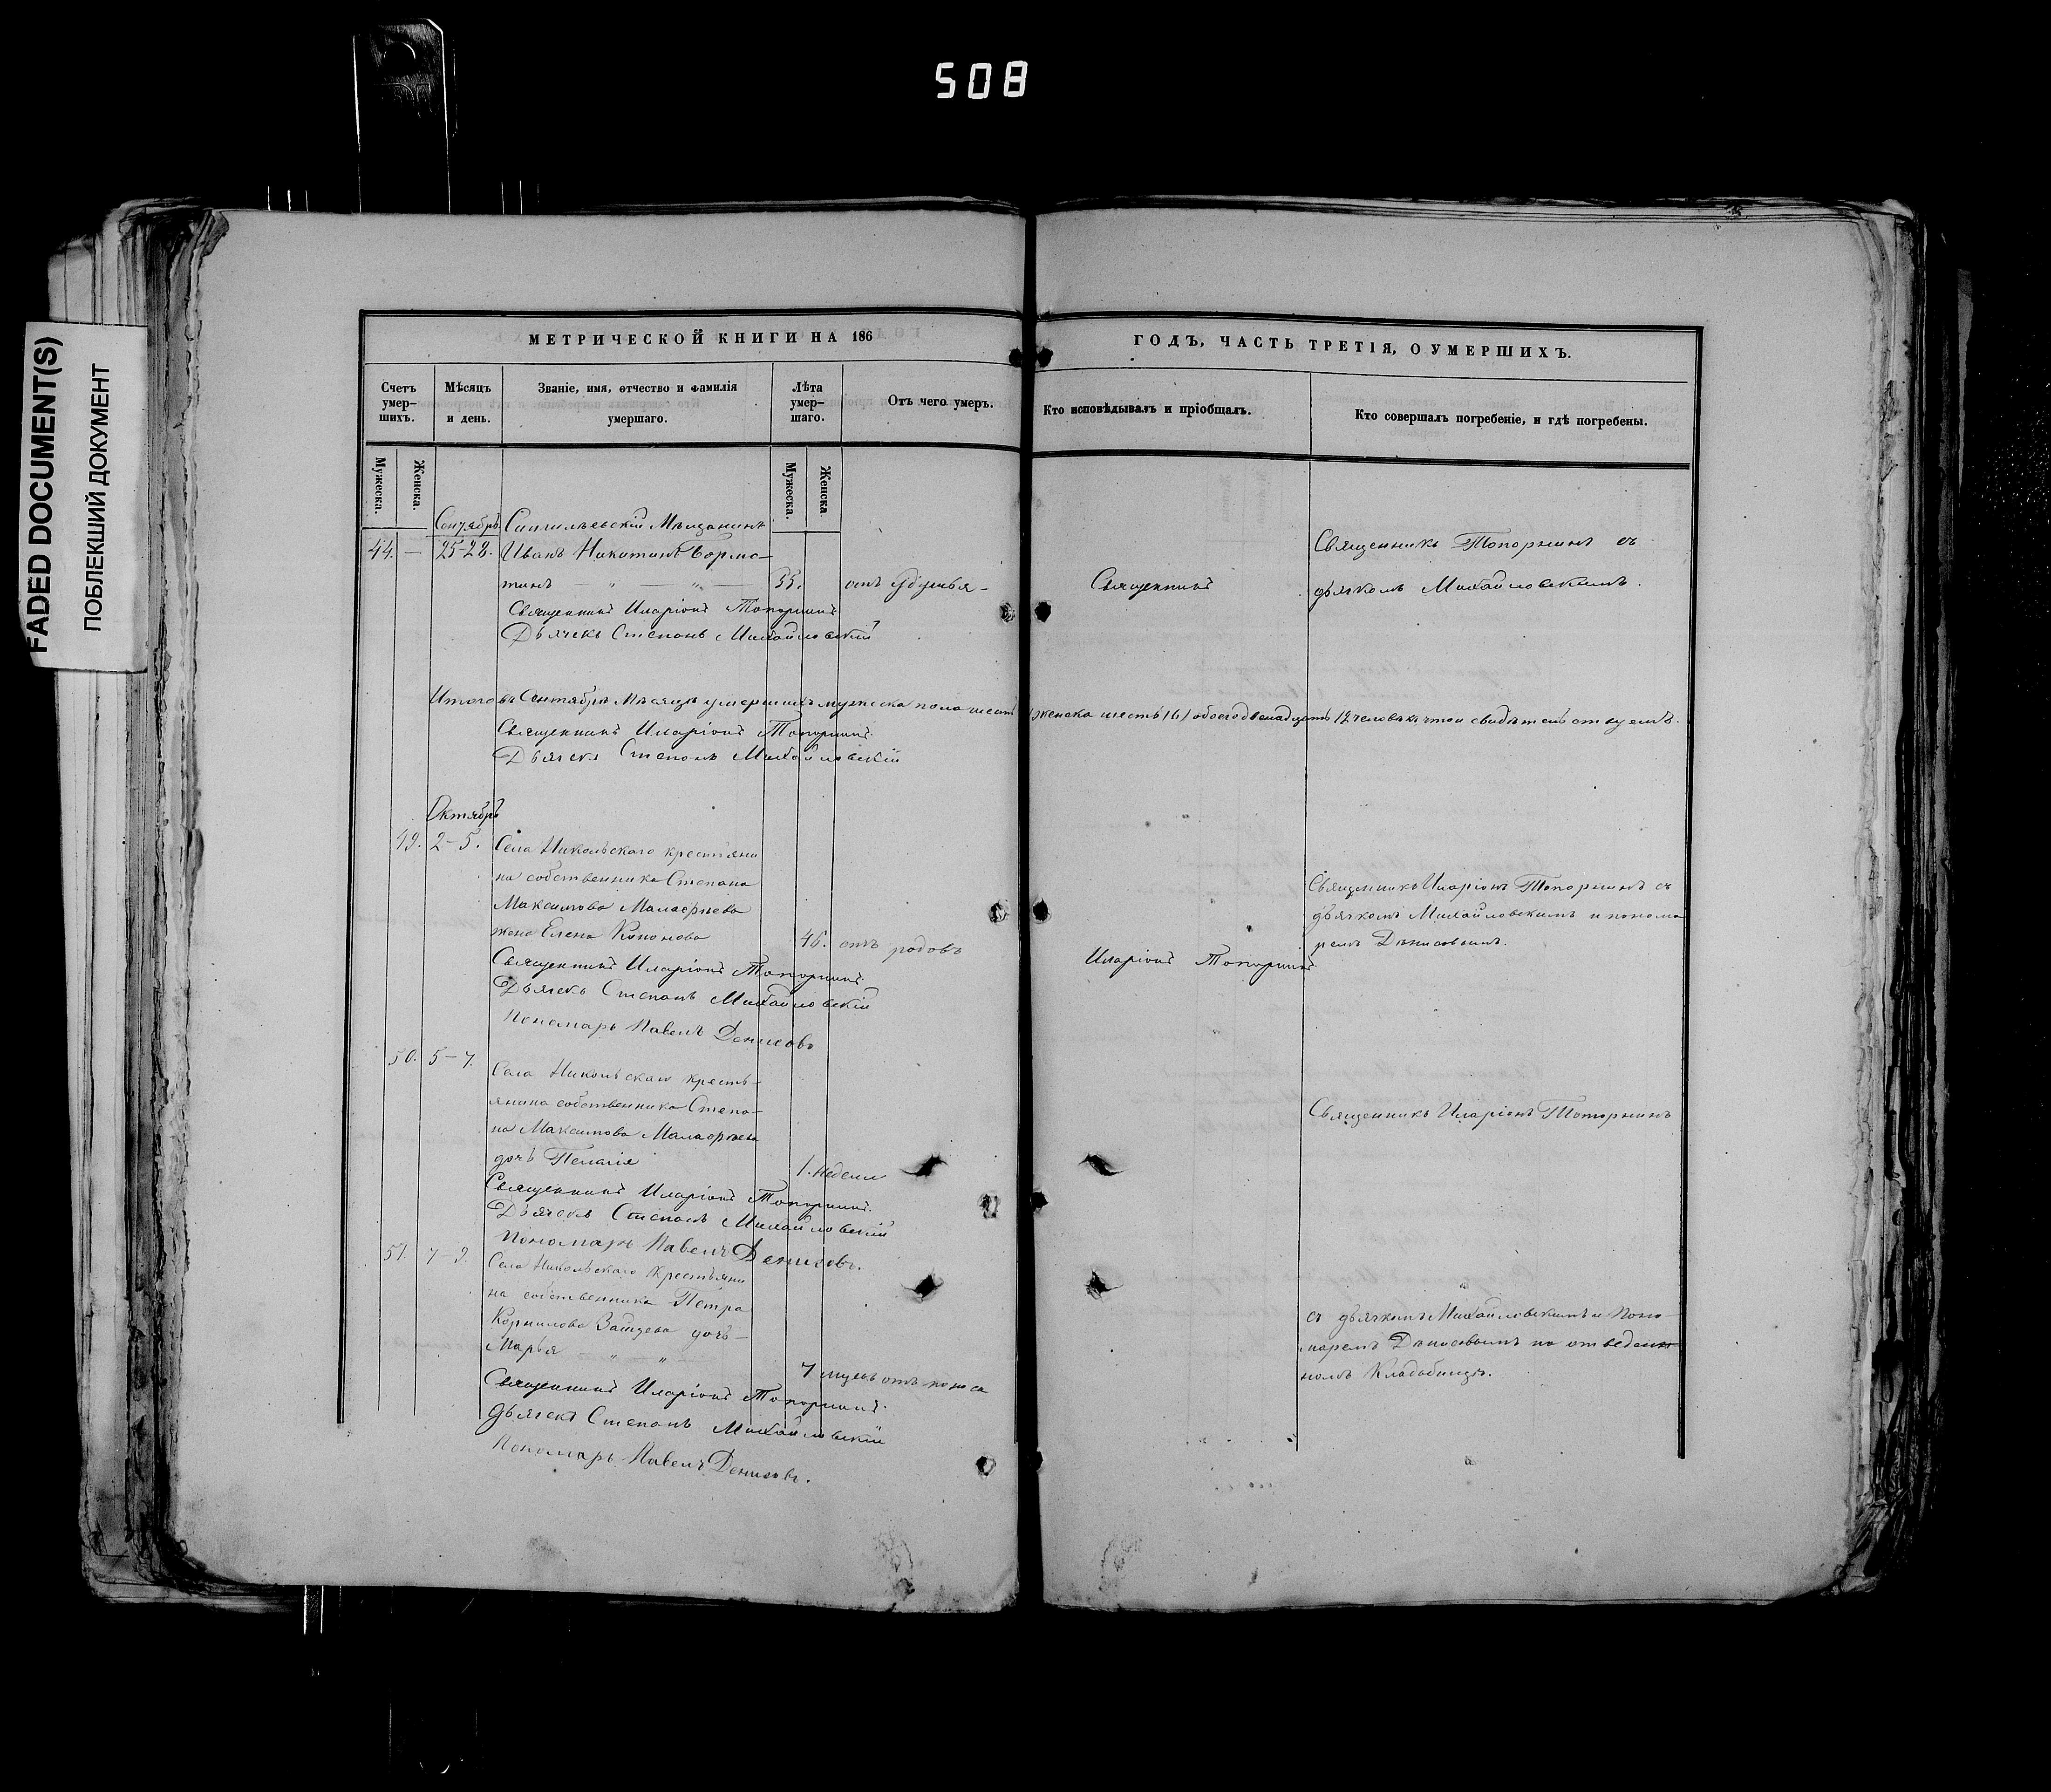 508
FADED DOCUMENT(S)
ПОБЛЕКШИЙ ДОКУМЕНТ
МЕТРИЧЕСКОЙ КНИГИ НА 186
Счетъ умер-шихъ.
Мѣсяцъ и день.
Званіе, имя, отчество и фамилія умершаго.
Лѣта умер-шаго.
Отъ чего умеръ.
Мужеска.
Женска.
Мужеска.
Женска.
Сентябрь Мѣщанинъ
44. — 25-28. Иванъ Никитинъ
тинъ — " — " — 55. отъ
Священникъ Иларіонъ Топорнинъ
Дьячекъ Степанъ Михайловскій
Итого въ Сентябрѣ Мѣсяцѣ умершихъ мужеска пола шесть
Священникъ Иларіонъ Топорнинъ.
Дьячекъ Степанъ Михайловскій
Октябрь
49. 2-5. Села Никольскаго крестьяни
на собственника Степана
Максимова
жена Елена Кононова 46. отъ родовъ
Священникъ Иларіонъ Топорнинъ.
Дьячекъ Степанъ Михайловскій
Пономарь Павелъ Денисовъ
50. 5-7. Села Никольскаго кресть-
янина собственника Степа-
на Максимова
дочь Пелагія 1. недели
Священникъ Иларіонъ Топорнинъ.
Дьячекъ Степанъ Михайловскій
Пономарь Павелъ Денисовъ.
51. 7-9. Села Никольскаго Крестьяни
на собственника Петра
Корнилова Зайцева дочь-
Марья — " — "
7 отъ поноса
Священникъ Иларіонъ Топорнинъ.
дьячекъ Степанъ Михайловскій
Пономарь Павелъ Денисовъ.
ГОДЪ, ЧАСТЬ ТРЕТІЯ, О УМЕРШИХЪ.
Кто исповѣдывалъ и пріобщалъ.
Кто совершалъ погребеніе, и гдѣ погребены.
Священникъ Топорнинъ съ
Священникъ
дьячкомъ Михайловскимъ.
женска шесть (6) обоего двенадцать 12 человекъ въ томъ свидѣтельствуемъ.
Священникъ Иларіонъ Топорнинъ съ
дьячкомъ Михайловскимъ и понома
ремъ Денисовымъ.
Иларіонъ Топорнинъ
Священникъ Иларіонъ Топорнинъ
съ дьячкомъ Михайловскимъ и Поно-
маремъ Денисовымъ на отведен
номъ Кладбищѣ.